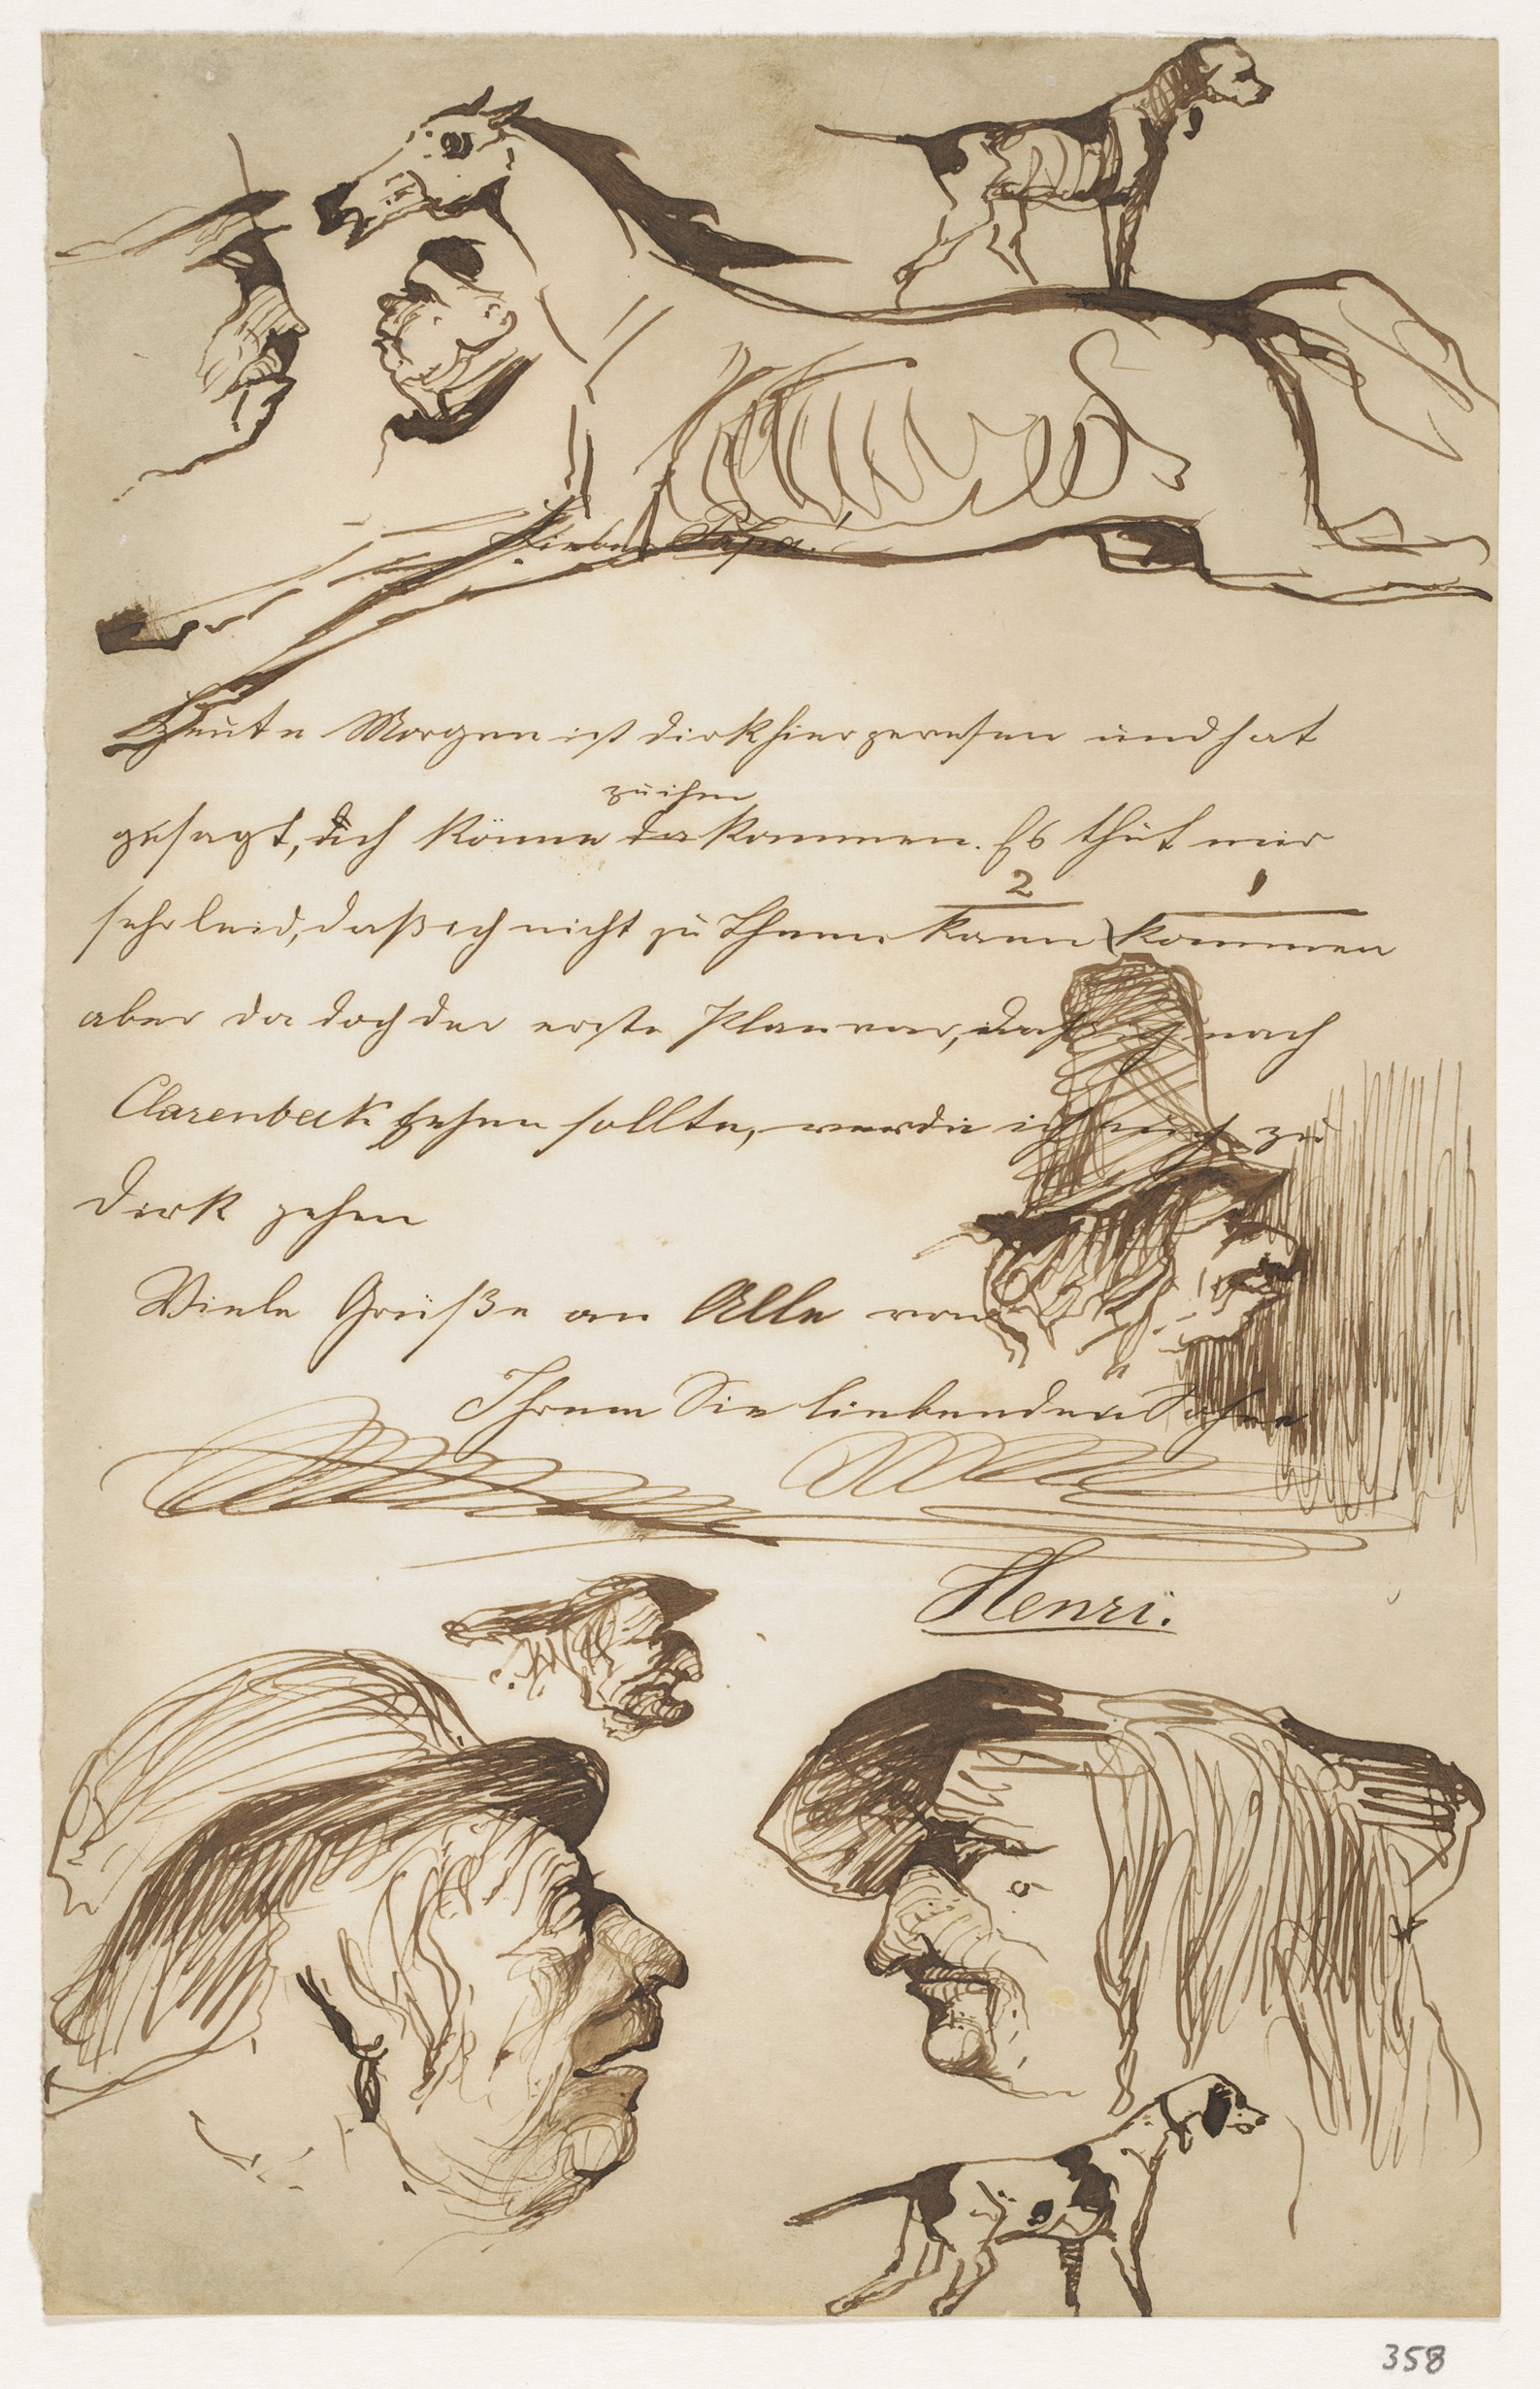 Lieber Papa!
Heute Morgen ist Dirk hier gewesen und hat
zu ihm
gesagt, ich könne da kommen. Es thut mir
2 1
sehr leid, daß ich nicht zu Ihnen kann kommen
aber da doch der erste Plan war, daß ich nach
Clarenbeek gehen sollte, werde ich auch zu
Dirk gehen
Viele Grüße an Alle von
Ihrem Sie liebenden Sohne
Henri.
358